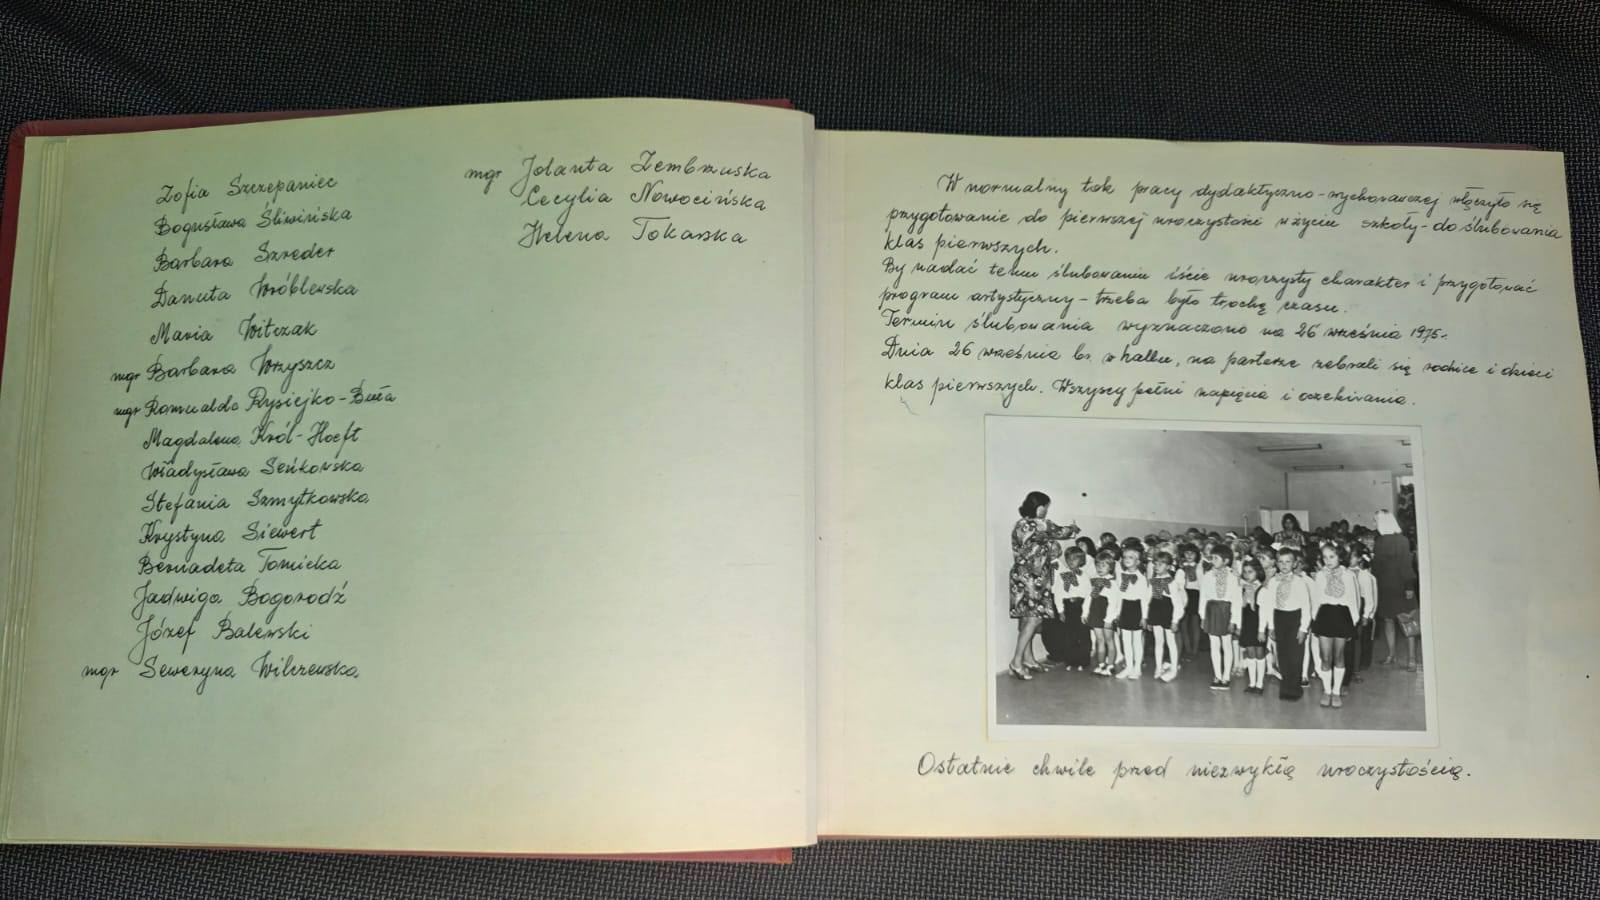 Zofia Szczepaniec
Bogusława Śliwińska
Barbara Szreder
Danuta Wróblewska
Maria Witczak
mgr Barbara Wrzyszcz
mgr Romualda Rysiejko-Buła
Magdalena Król-Hoeft
Władysława Seńkowska
Stefania Szmytkowska
Krystyna Siewert
Bernadeta Tomicka
Jadwiga Bogorodź
Józef Balewski
mgr Seweryna Wilczewska
mgr Jolanta Zembrzuska
Cecylia Nowocińska
Helena Tokarska
W normalny tok pracy dydaktyczno-wychowawczej włączyło się
przygotowanie do pierwszej uroczystości w życiu szkoły - do ślubowania
klas pierwszych.
By nadać temu ślubowaniu iście uroczysty charakter i przygotować
program artystyczny - trzeba było trochę czasu.
Termin ślubowania wyznaczono na 26 września 1975r.
Dnia 26 września br. w hallu, na parterze zebrali się rodzice i dzieci
klas pierwszych. Wszyscy pełni napięcia i oczekiwania.
Ostatnie chwile przed niezwykłą uroczystością.